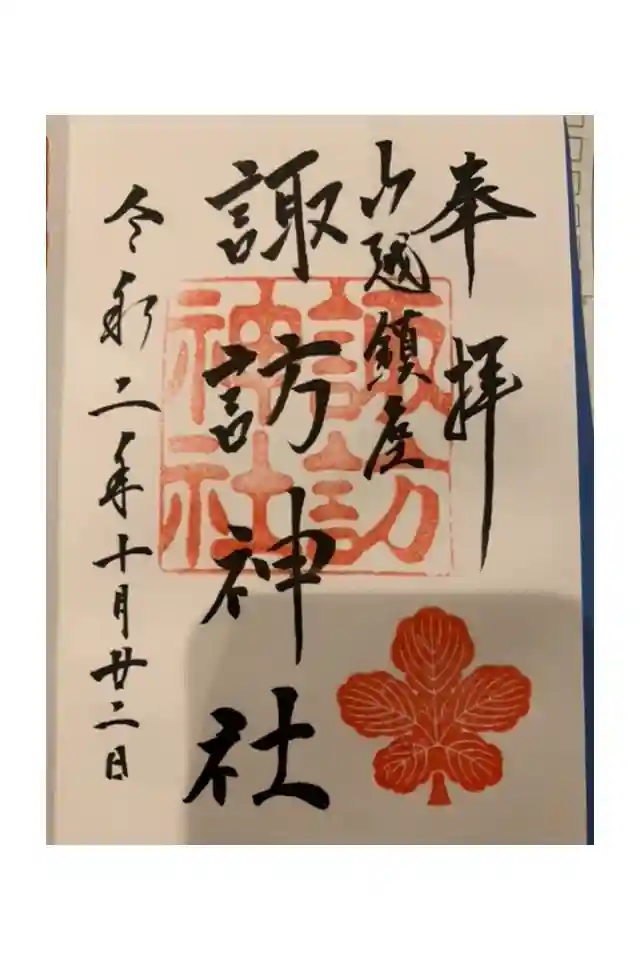 奉拝
山越鎮座
諏訪神社
令和二年十月廿二日
諏訪
神社